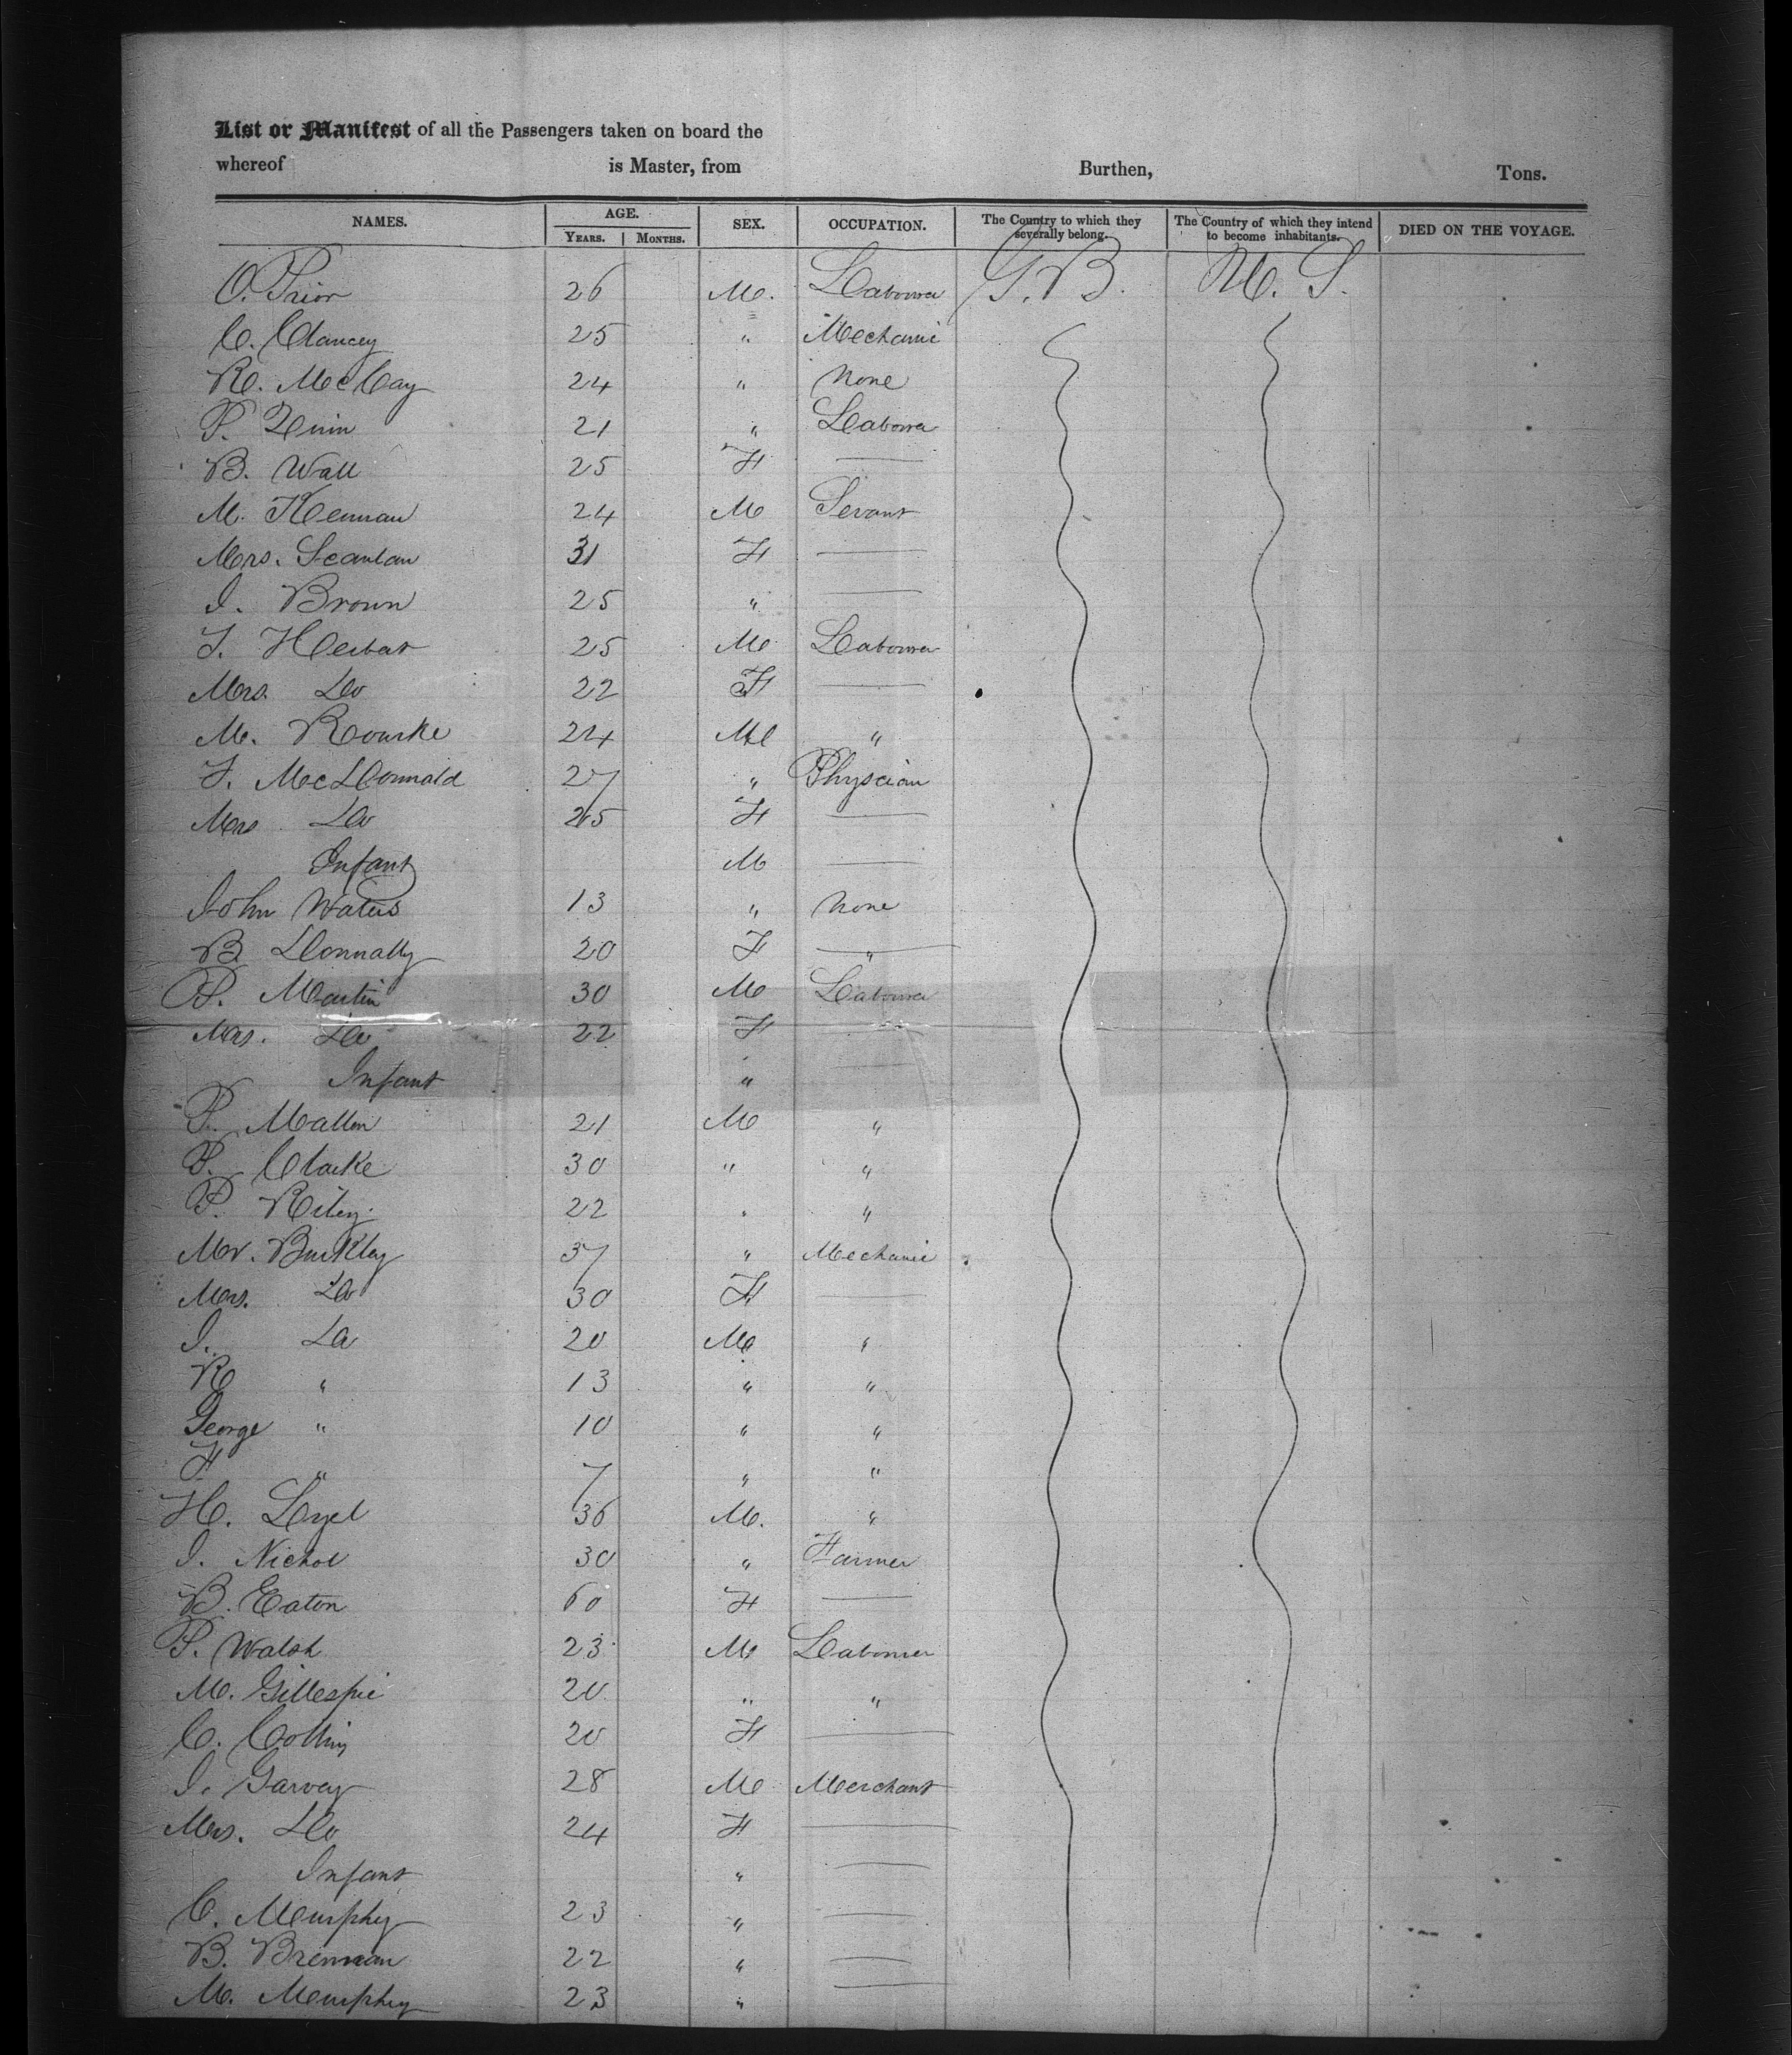 List or Manifest of all the Passengers taken on board the
whereof is Master, from Burthen, Tons.
NAMES. AGE. YEARS. MONTHS. SEX. OCCUPATION. The Country to which they severally belong. The Country of which they intend to become inhabitants. DIED ON THE VOYAGE.
O. Prior 26 M. Labourer G.B. U.S.
C. Clancey 25 " Mechanic
R. McCay 24 " None
P. Quinn 21 " Labourer
B. Wall 25 F —
M. Keenan 24 M Servant
Mrs. Scanlan 31 F —
J. Brown 25 " —
T. Herbat 25 M Labourer
Mrs. Do 22 F —
M. Rourke 24 M "
F. McDonnald 27 " Physcian
Mrs Do 25 F —
Infant M —
John Waters 13 " None
B Donnally 20 F — "
P. Martin 30 M Labourer
Mrs. Do 22 F —
Infant " —
P. Mallon 21 M "
P. Clarke 30 " "
P. Riley 22 " "
Mr. Burkley 37 " Mechanic
Mrs. Do 30 F —
J. Do 20 M "
R " 13 " "
George " 10 " "
F " 7 " "
H. Lyel 36 M. "
J. Nichol 30 " Farmer
B. Eaton 60 F —
P. Walsh 23 M Labourer
M. Gillespie 20 " "
C. Collins 20 F —
J. Garvey 28 M Merchant
Mrs. Do 24 F —
Infant " —
C. Murphy 23 " —
B. Brennan 22 " —
M. Murphy 23 " —